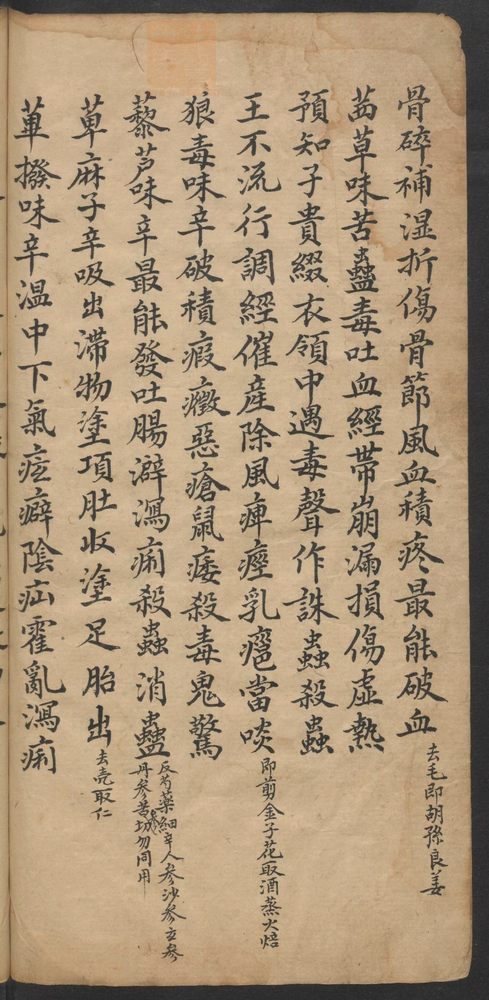 骨碎補湿折傷骨節風血積疼最能破血 去毛即胡孫良姜
茜草味苦蠱毒吐血經帯崩漏損傷虛熱
預知子貴綴衣領中遇毒聲作誅蟲殺蟲
王不流行調經催産除風痺痙乳癰當啖 即剪金子花取酒蒸火焙
狼毒味辛破積瘕癥惡瘡鼠瘘殺毒鬼驚
藜芦味辛最能發吐腸澼瀉痢殺蟲消蠱 反芍藥細辛人参沙参玄参丹参苦参切勿同用
萆麻子辛吸出滞物塗項肚收塗足胎出 去壳取仁
蓽撥味辛温中下氣痃癖陰疝霍亂瀉痢